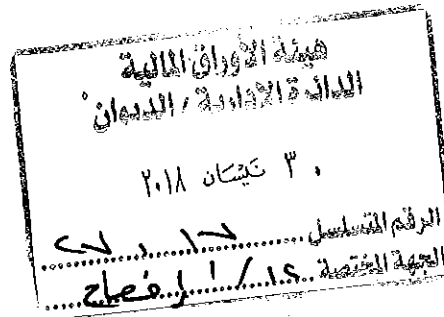 هيئة الأوراق المالية
الدائرة الإدارية / الديوان
٣٠ نيسان ٢٠١٨
الرقم المتسلسل
الجهة المختصة ١٢/١ إفصاح